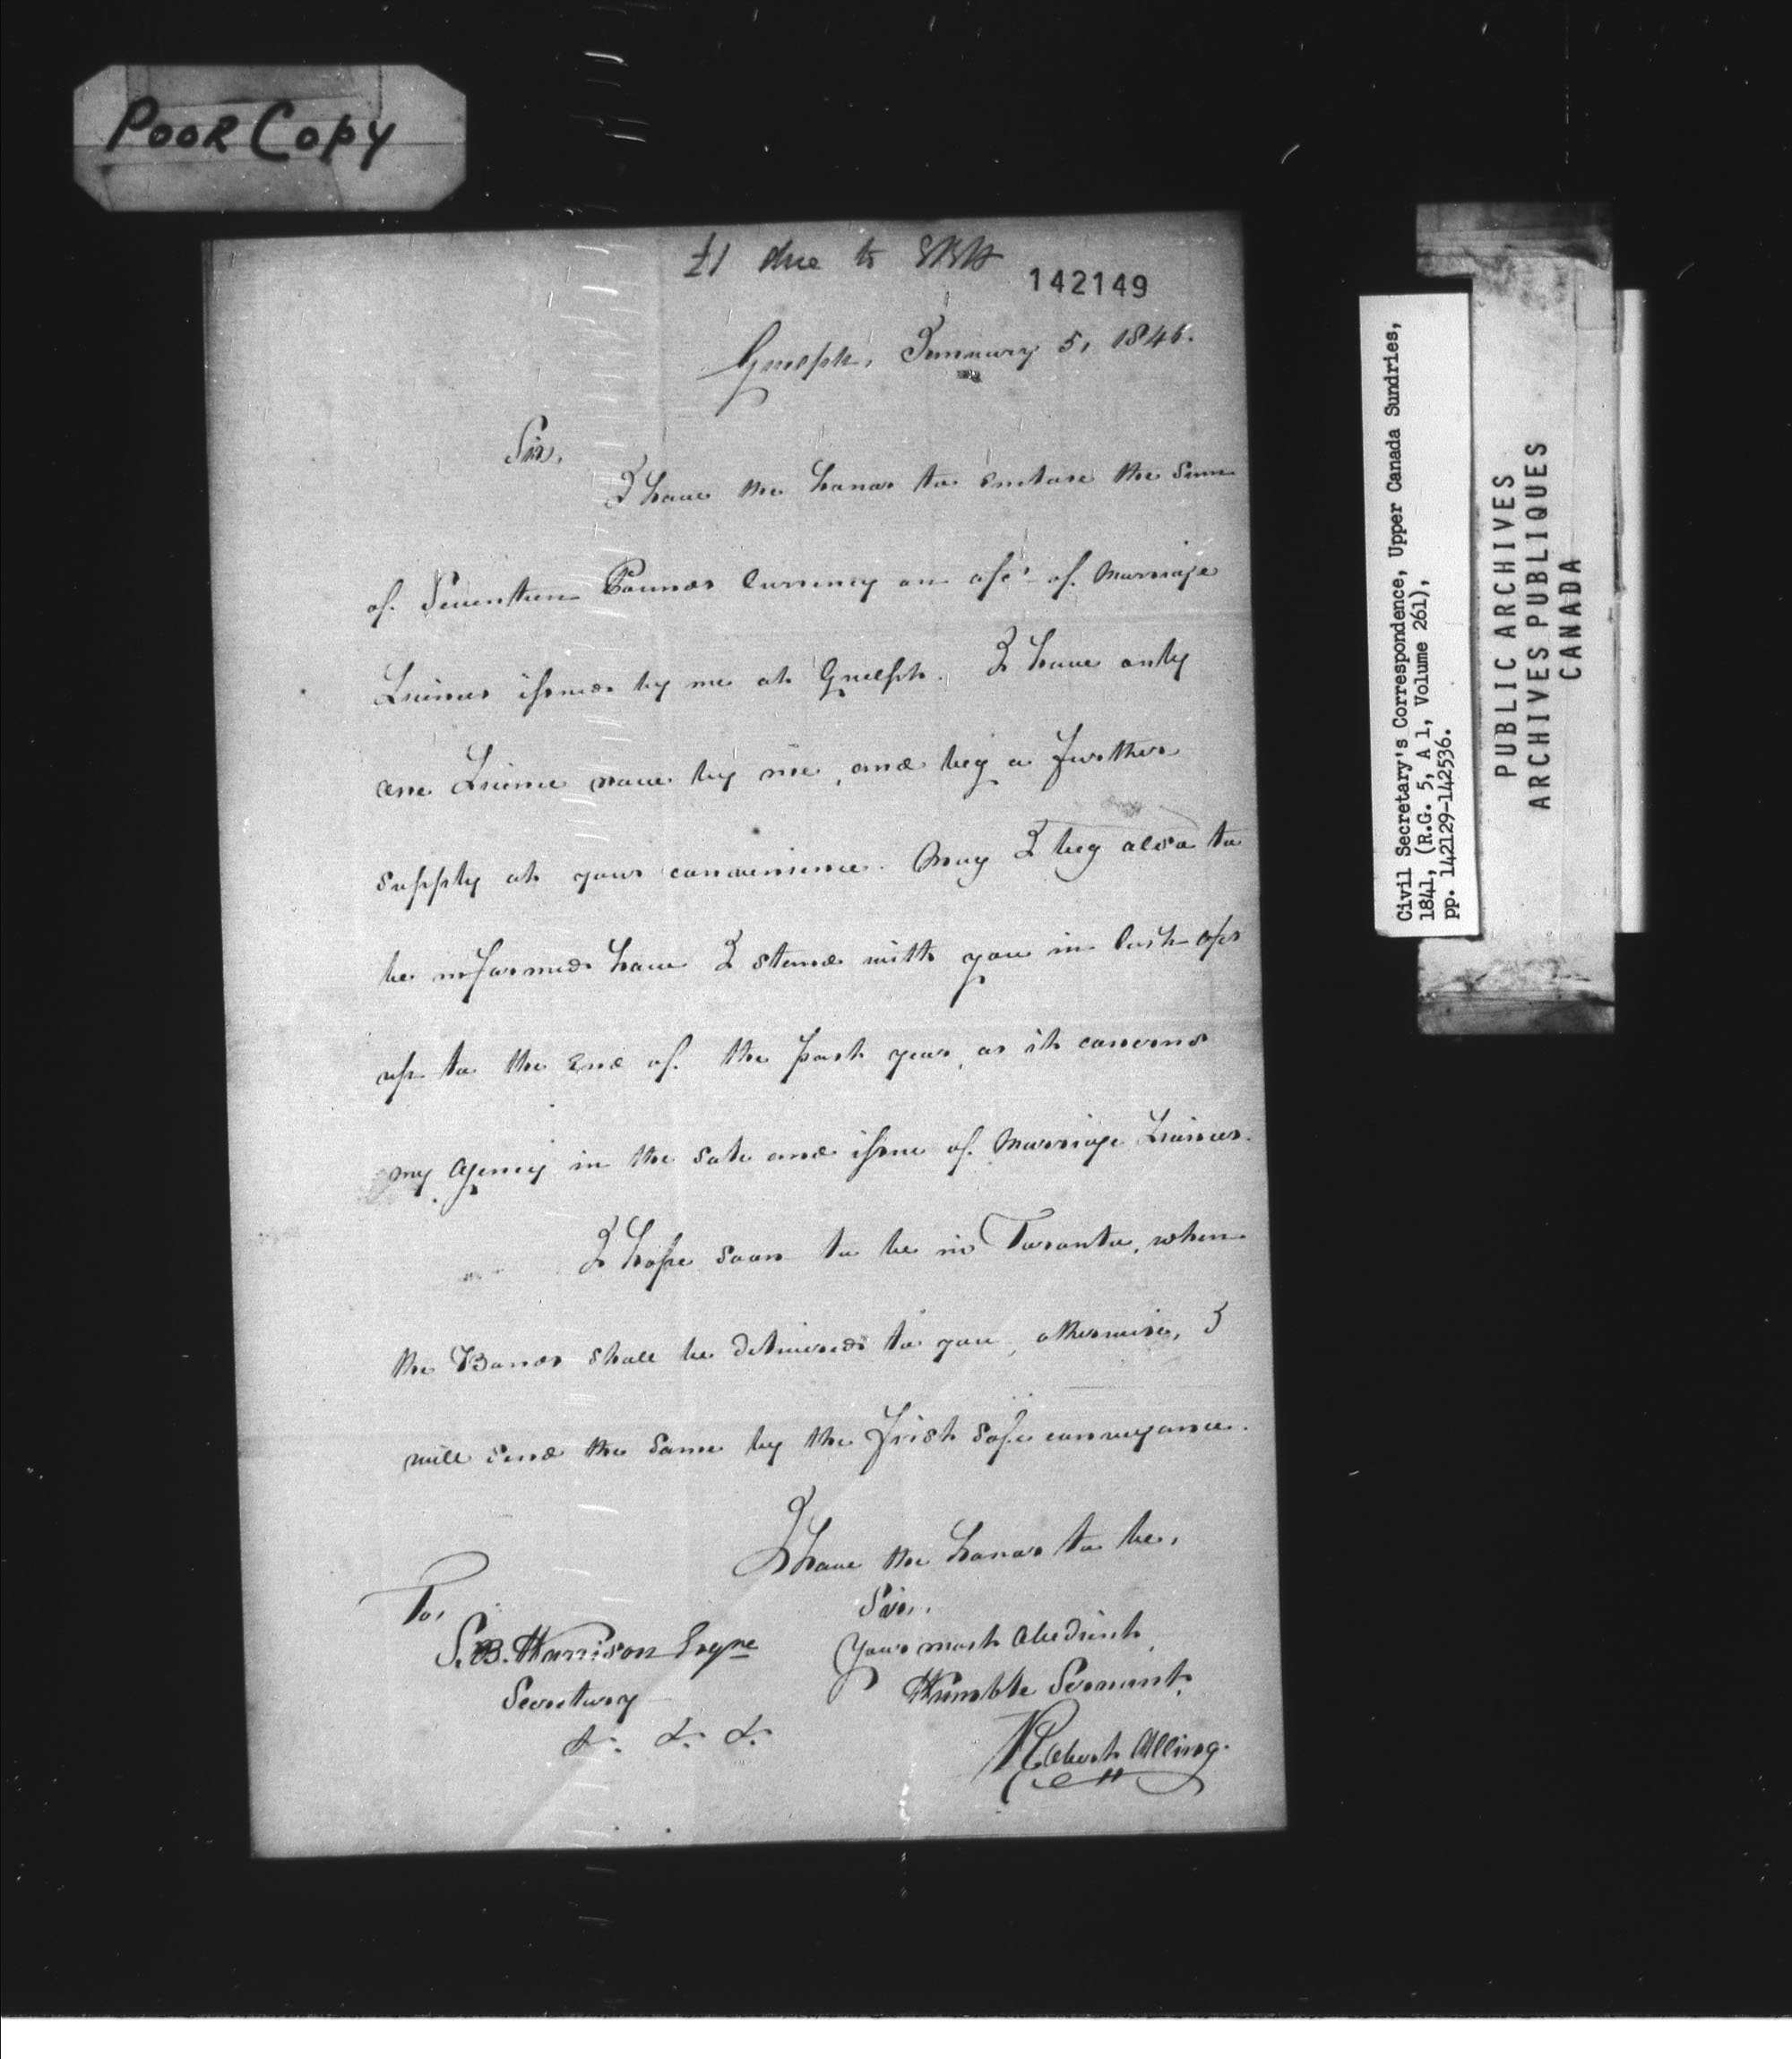 Poor Copy
£1 due to SBH
142149
Guelph, January 5, 1841.
Sir,
I have the honor to enclose the Sum
of Seventeen Pounds Currency on a/ct of Marriage
Licences issued by me at Guelph. I have only
one Licence now by me, and beg a further
supply at your convenience. May I beg also to
be informed how I stand with you in Cash a/ct
up to the End of the past year, as it concerns
my Agency in the Sale and issue of Marriage Licences.
I hope soon to be in Toronto, when
the Bonds shall be delivered to you, otherwise, I
will send the same by the first safe conveyance.
I have the honor to be,
Sir,
Your most Obedient
Humble Servant,
Robert Alling.
To,
S. B. Harrison Esqre
Secretary
&. &. &.
Civil Secretary's Correspondence, Upper Canada Sundries,
1841, (R.G. 5, A 1, Volume 261),
pp. 142129-142536.
PUBLIC ARCHIVES
ARCHIVES PUBLIQUES
CANADA